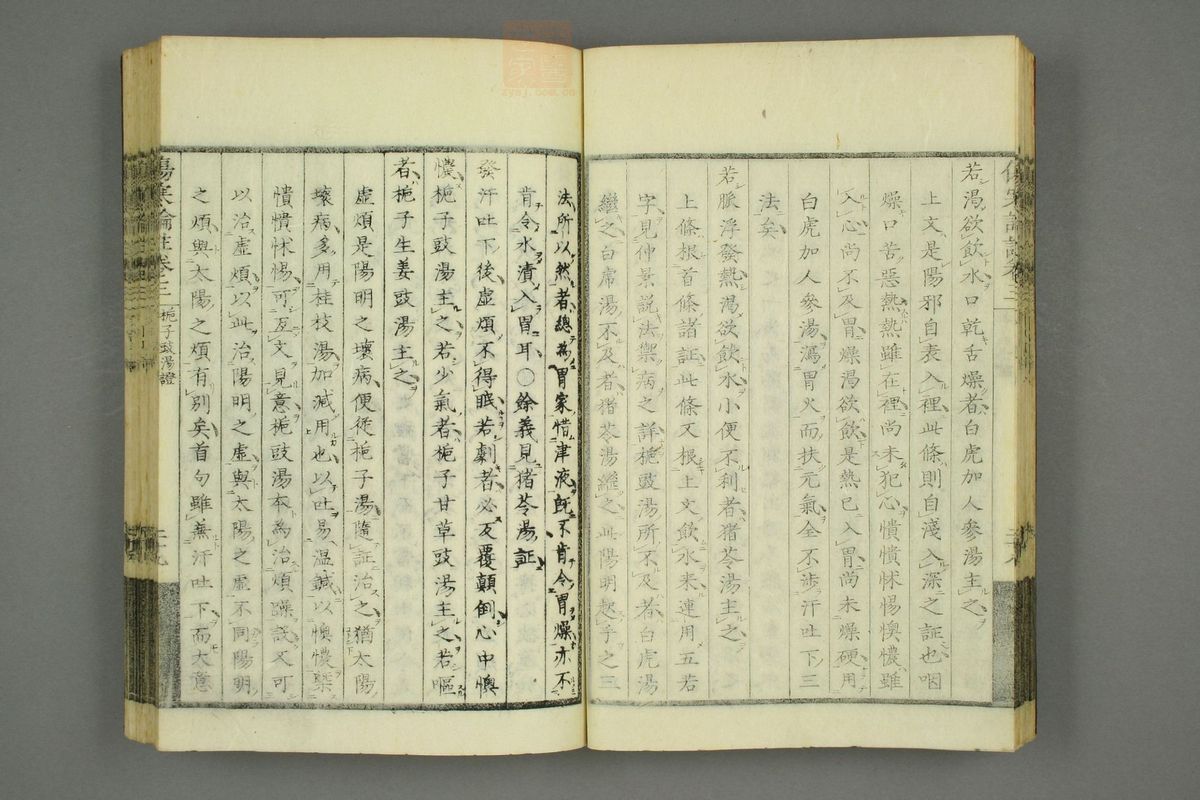 若渴欲飲水口乾舌燥者白虎加人參湯主之
上文是陽邪自表入裡此條則自淺入深之証也咽
燥口苦惡熱熱雖在裡尚未犯心憒憒怵惕懊憹雖
入心尚不及胃燥渴欲飲是熱已入胃尚未燥硬用
白虎加人參湯瀉胃火而扶元氣全不涉汗吐下三
法矣
若脈浮發熱渴欲飲水小便不利者猪苓湯主之
上條根首條諸証此條又根上文飲水来連用五若
字見仲景説法禦病之詳栀豉湯所不及者白虎湯
繼之白虎湯不及者猪苓湯繼之此陽明起手之三
法所以然者總為胃家惜津液既不肯令胃燥亦不
肯令水漬入胃耳〇餘義見猪苓湯証
發汗吐下後虚煩不得眠若劇者必反覆顛倒心中懊
憹栀子豉湯主之若少氣者栀子甘草豉湯主之若嘔
者栀子生姜豉湯主之
虚煩是陽明之壞病便従栀子湯隨証治之猶太陽
壞病多用桂枝湯加減用也以吐易温鍼以懊憹槩
憒憒怵惕可互文見意栀豉湯本為治煩躁設又可
以治虚煩以此治陽明之虚與太陽之虚不同陽明
之煩與太陽之煩有別矣首句雖兼汗吐下而大意
傷寒論註卷三
栀子豉湯證